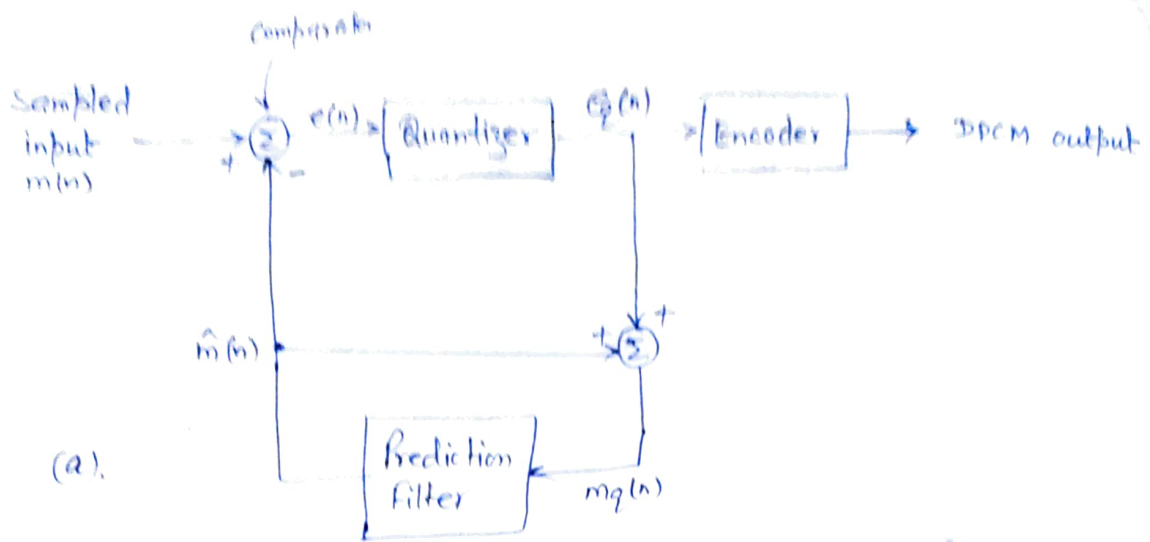 comparator
Sampled
input
m(n)
+
Σ
-
e(n)
Quantizer
eq(n)
Encoder
DPCM output
m̂(n)
+
Σ
+
(a).
Prediction
Filter
mq(n)